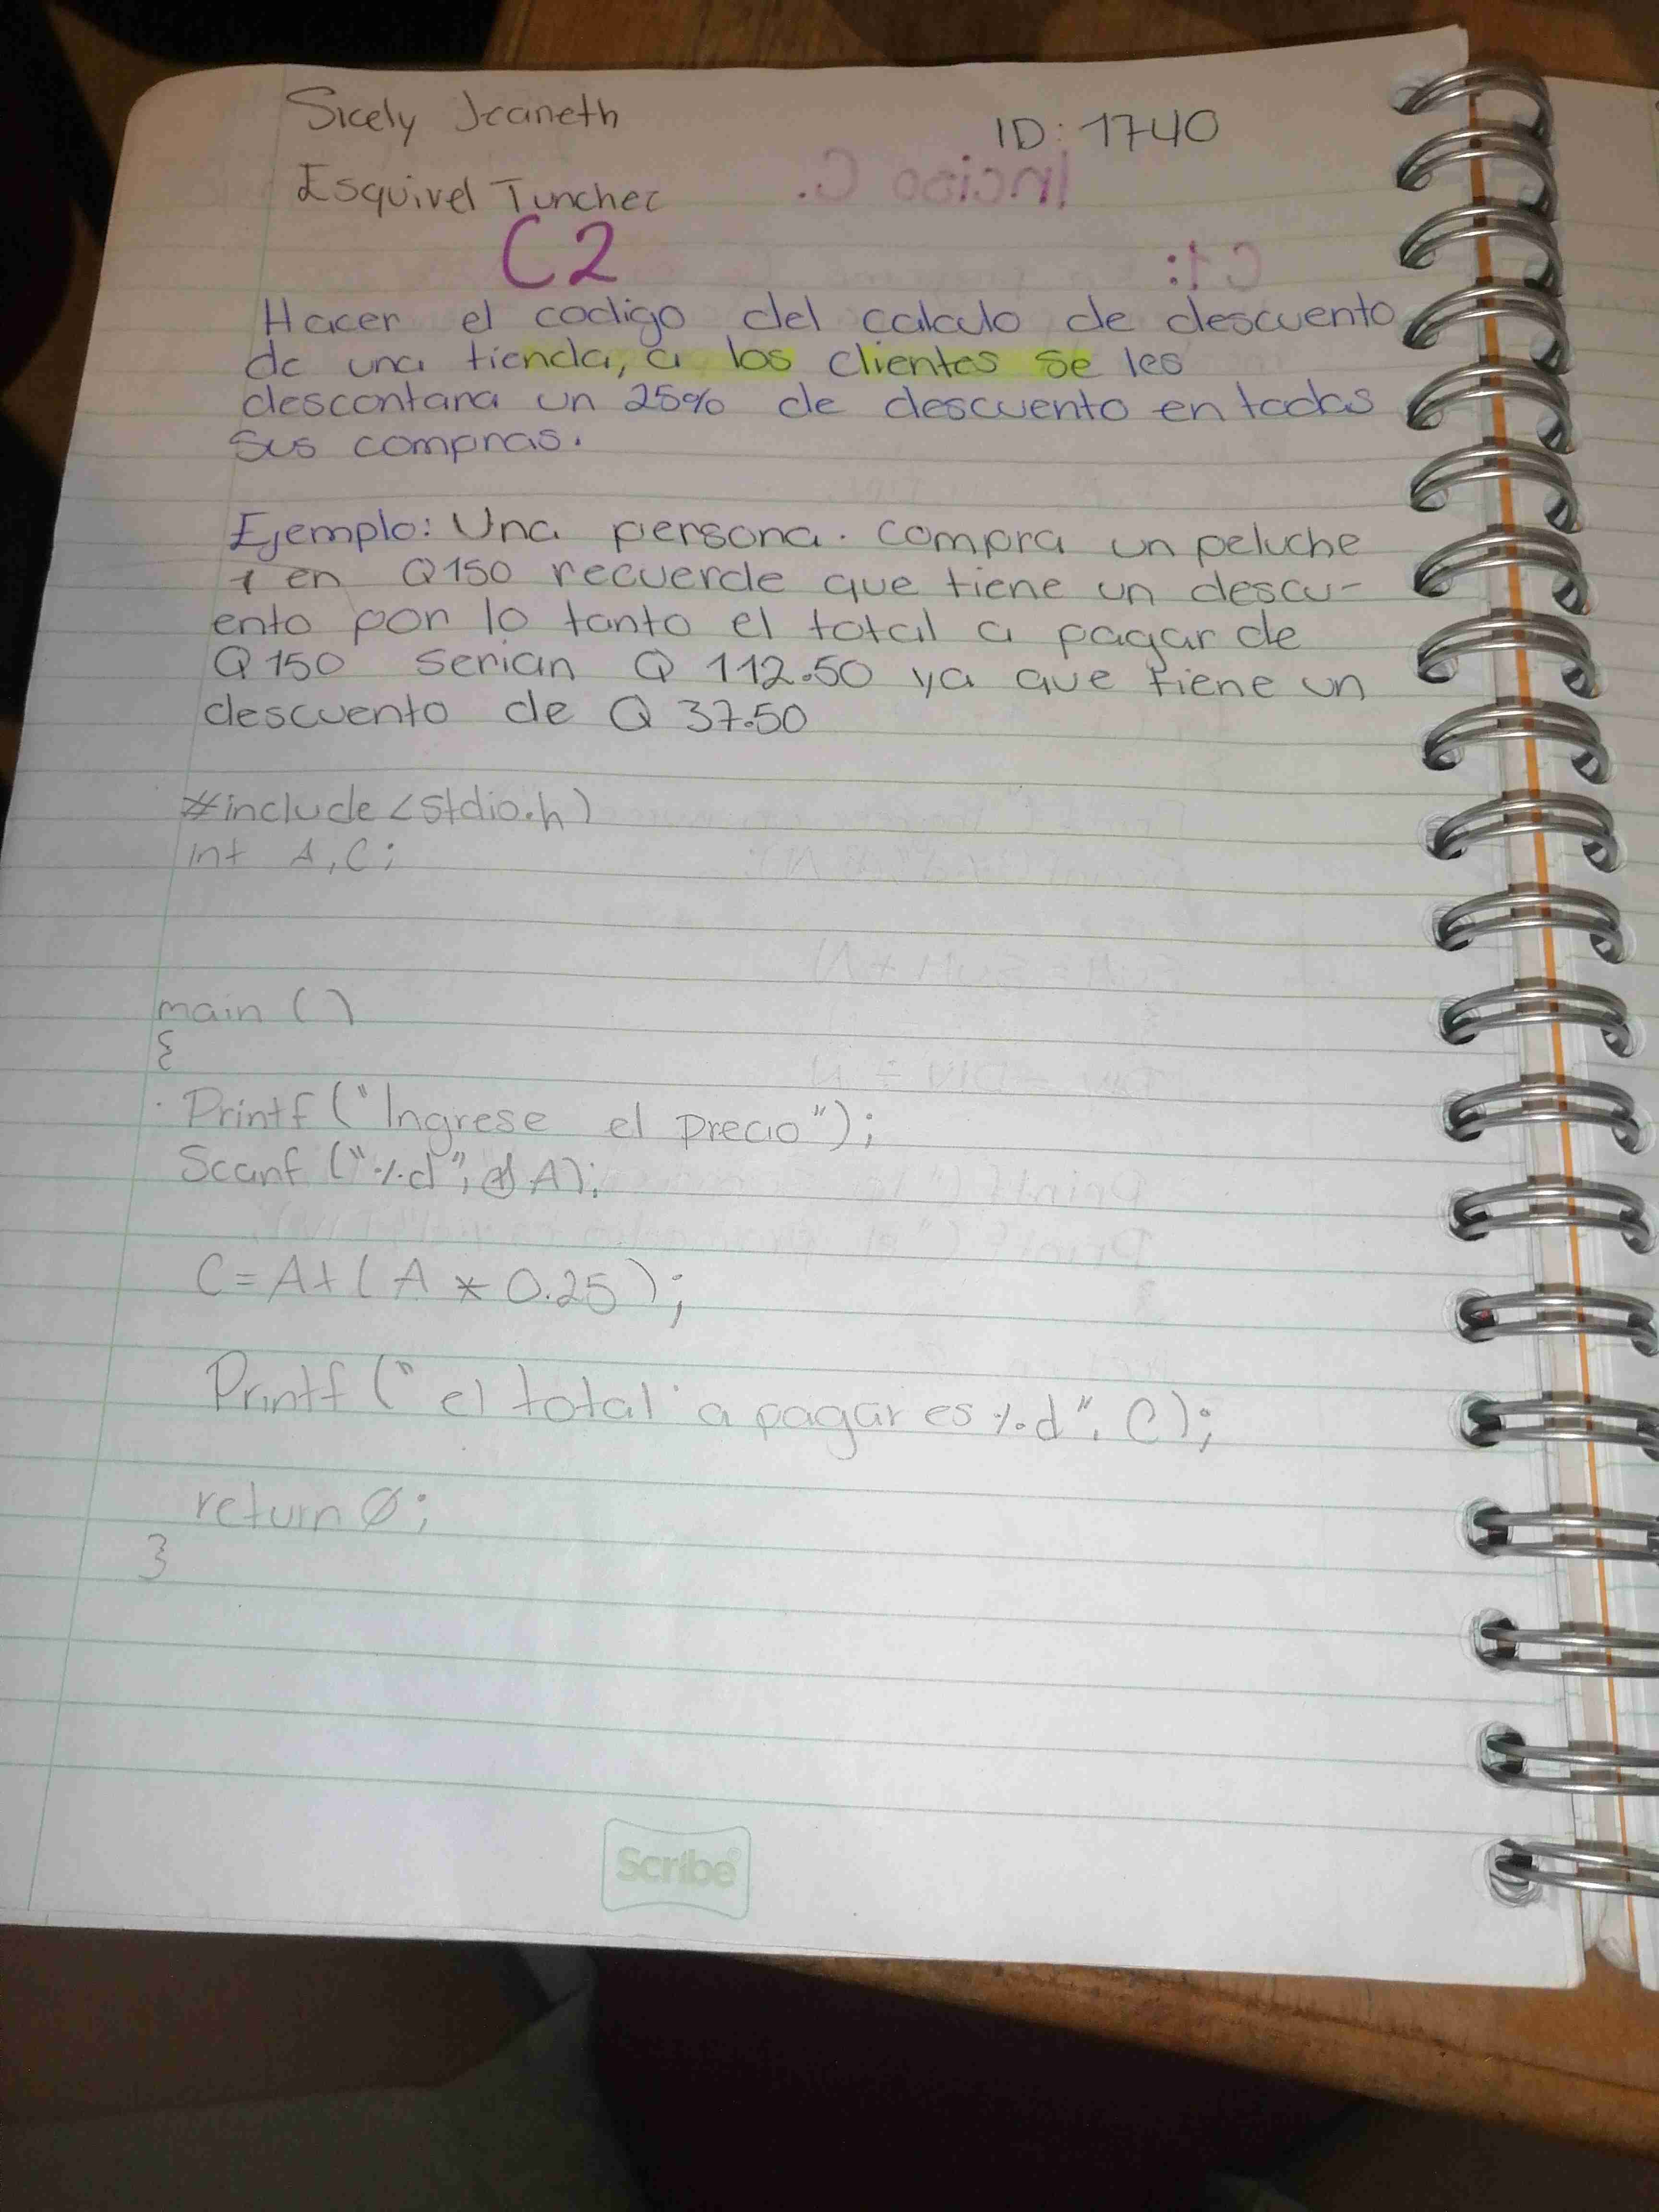 Sicely Jeaneth
ID: 1740
Esquivel Tunchec
C2
Hacer el codigo del calculo de descuento
de una tienda, a los clientes se les
descontara un 25% de descuento en todas
sus compras.
Ejemplo: Una persona. compra un peluche
en Q150 recuerde que tiene un descu-
ento por lo tanto el total a pagar de
Q150 serian Q 112.50 ya que tiene un
descuento de Q 37.50
#include <stdio.h)
int A, C;
main ()
{
Printf ("Ingrese el precio");
Scanf ("%d", & A);
C = A + ( A * 0.25 );
Printf (" el total a pagar es %d", C);
return 0;
}
Scribe